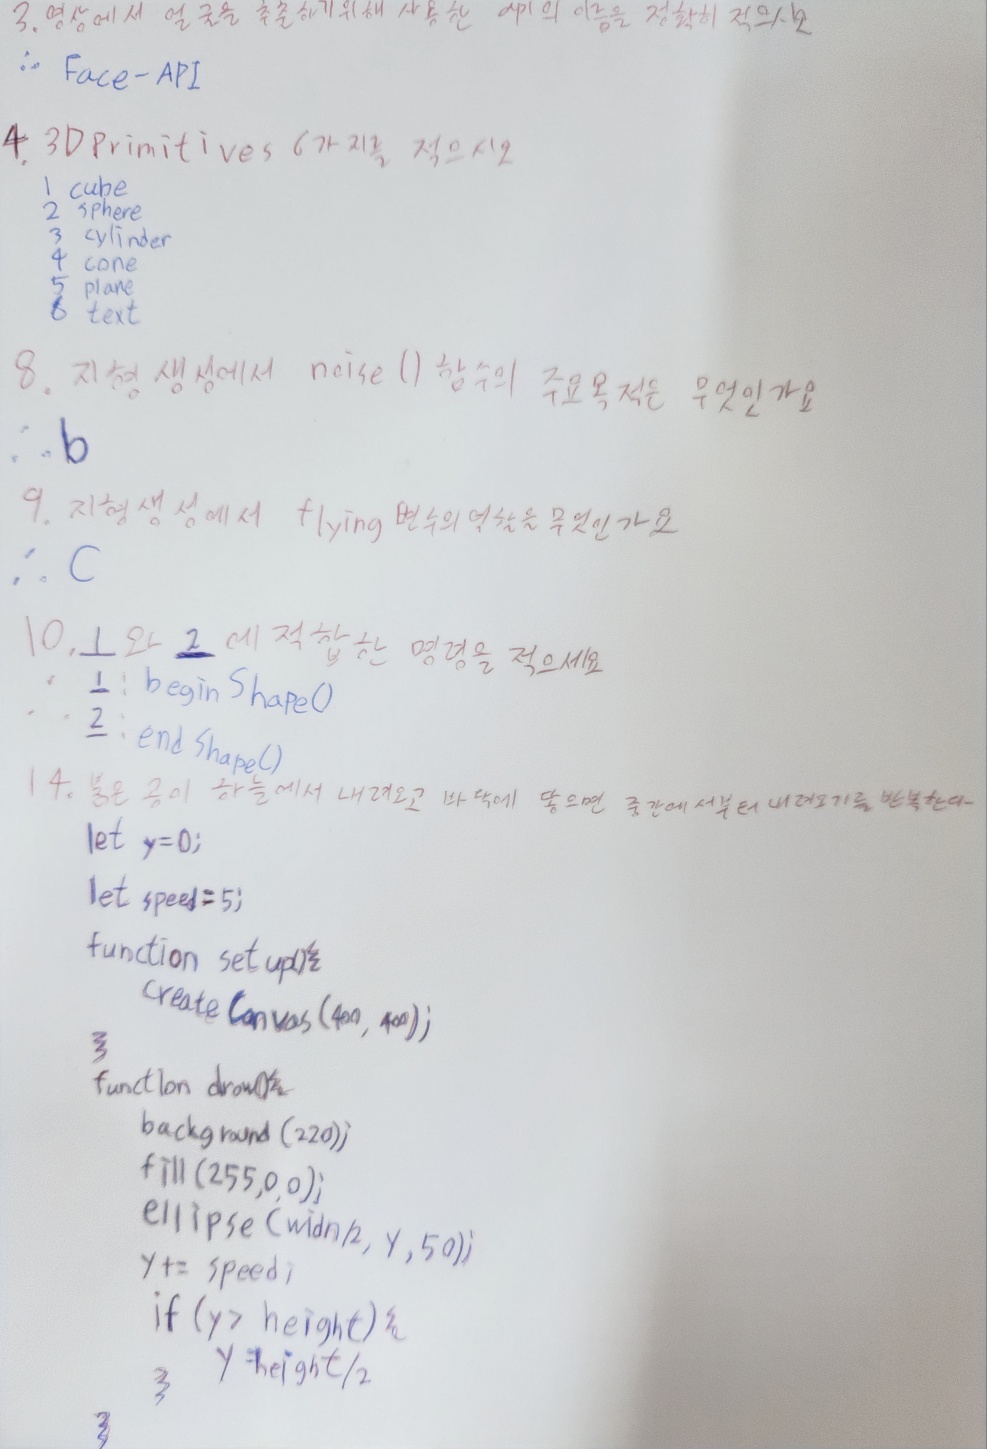 3. 영상에서 얼굴을 추출하기위해 사용한 api의 이름을 정확히 적으시오
∴ Face-API
4. 3D Primitives 6가지를 적으시오
1 cube
2 sphere
3 cylinder
4 cone
5 plane
6 text
8. 지형생성에서 noise() 함수의 주요목적은 무엇인가요
∴ b
9. 지형생성에서 flying 변수의 역할을 무엇인가요
∴ C
10. 1와 2에 적합한 명령을 적으세요
1 : beginShape()
2 : endShape()
14. 붉은 공이 하늘에서 내려오고 바닥에 닿으면 중간에서부터 내려오기를 반복한다
let y=0;
let speed=5;
function setup(){
createCanvas(400, 400);
}
function draw(){
background(220);
fill(255,0,0);
ellipse(widn/2, y, 50);
y+= speed;
if (y> height){
y=height/2
}
}